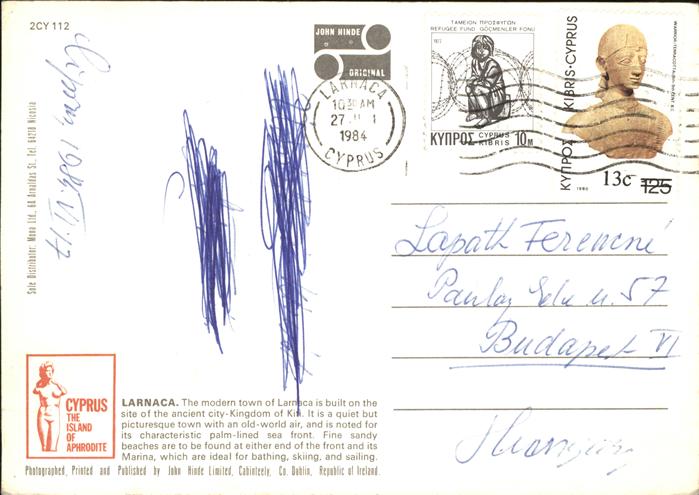 2CY 112
JOHN HINDE
ORIGINAL
LARNACA
1030 AM
1984
CYPRUS
ΤΑΜΕΙΟΝ ΠΡΟΣΦΥΓΩΝ
REFUGEE FUND GÖÇMENLER FONU
1977
ΚΥΠΡΟΣ CYPRUS KIBRIS 10M
ΚΥΠΡΟΣ KIBRIS·CYPRUS
1980
13c 125
1984. VI. 17
Sole Distributor: Mona Ltd., 6A Arnaldas St. Tel. 64218 Nicosia
Ferencné
u. 57
Budapest VI
CYPRUS
THE
ISLAND
OF
APHRODITE
LARNACA. The modern town of Larnaca is built on the
site of the ancient city-Kingdom of Kiti. It is a quiet but
picturesque town with an old-world air, and is noted for
its characteristic palm-lined sea front. Fine sandy
beaches are to be found at either end of the front and its
Marina, which are ideal for bathing, skiing, and sailing.
Photographed, Printed and Published by John Hinde Limited, Cabinteely, Co. Dublin, Republic of Ireland.